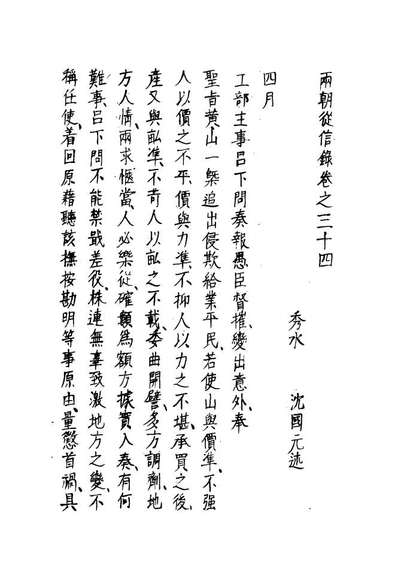 兩朝從信錄卷之三十四
秀水　沈國元述
四月
工部主事呂下問奏報愚臣督摧、變出意外、奉
聖旨黃山一槩追出侵欺給業平民、若使山與價準、不强
人以價之不平、價與力準、不抑人以力之不堪、承買之後、
產又與畝準、不苛人以畝之不載、委曲開譬、多方調劑、地
方人情、兩求愜當、人必樂從、確額為額、方據實入奏、有何
難事、呂下問不能禁戢差役、株連無辜、致激地方之變、不
稱任使、着回原藉聽該撫按勘明等事原由、量懲首禍、具